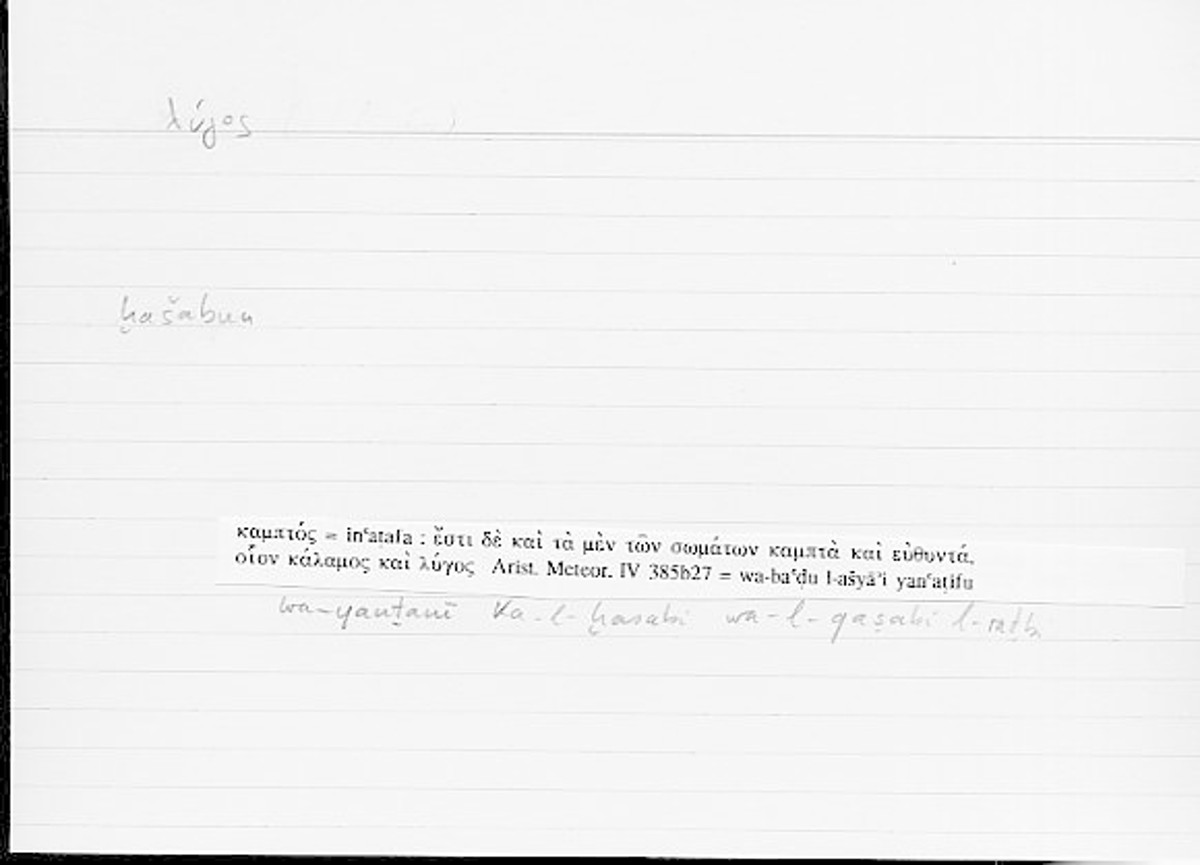 λύγος
ḫašabun
καμπτός = inʿaṭafa : ἔστι δὲ καὶ τὰ μὲν τῶν σωμάτων καμπτὰ καὶ εὐθυντά,
οἷον κάλαμος καὶ λύγος Arist. Meteor. IV 385b27 = wa-baʿḍu l-ašyāʾi yanʿaṭifu
wa-yanṯanī ka-l-ḫasabi wa-l-qaṣabi l-raṭbi